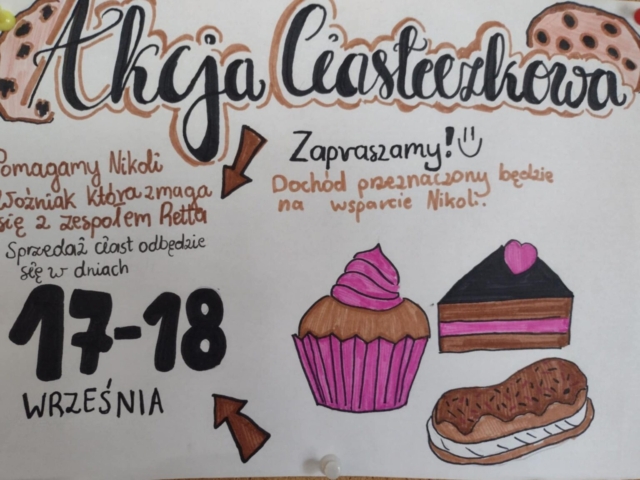 Akcja Ciasteczkowa
Pomagamy Nikoli
Woźniak która zmaga
się z zespołem Retta
Sprzedaż ciast odbędzie
się w dniach
17-18
WRZEŚNIA
Zapraszamy!
Dochód przeznaczony będzie
na wsparcie Nikoli.